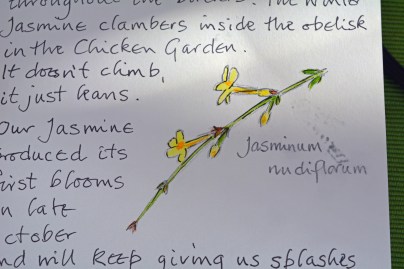 throughout the borders. The Winter
Jasmine clambers inside the obelisk
in the Chicken Garden.
It doesn't climb,
it just leans.
Our Jasmine
roduced its
irst blooms
n late
ctober
nd will keep giving us splashes
Jasminum
nudiflorum